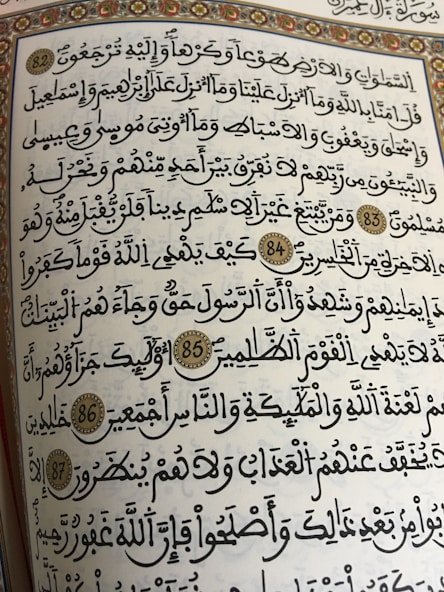 سُورَةُ ءَالِ عِمْرَان
اِ۬لسَّمَٰوَٰتِ وَالَارْضِ طَوْعاٗ وَكَرْهاٗ وَإِلَيْهِ تُرْجَعُونَۖ 82
قُلَ اٰمَنَّا بِاللَّهِ وَمَآ أُنزِلَ عَلَيْنَا وَمَآ أُنزِلَ عَلَىٰٓ إِبْرَٰهِيمَ وَإِسْمَٰعِيلَ
وَإِسْحَٰقَ وَيَعْقُوبَ وَالَاسْبَاطِ وَمَآ أُوتِيَ مُوسَىٰ وَعِيسَىٰ
وَالنَّبِيٓـُٔونَ مِن رَّبِّهِمْ لَا نُفَرِّقُ بَيْنَ أَحَدٖ مِّنْهُمْ وَنَحْنُ لَهُۥ
مُسْلِمُونَۖ 83 وَمَنْ يَّبْتَغِ غَيْرَ اَ۬لِاسْلَٰمِ دِيناٗ فَلَنْ يُّقْبَلَ مِنْهُ وَهُوَ
اِ۬لَاخِرَةِ مِنَ اَ۬لْخَٰسِرِينَۖ 84 كَيْفَ يَهْدِي اِ۬للَّهُ قَوْماٗ كَفَرُواْ
إِيمَٰنِهِمْ وَشَهِدُوٓاْ أَنَّ اَ۬لرَّسُولَ حَقّٞ وَجَآءَهُمُ اُ۬لْبَيِّنَٰتُۖ
لَا يَهْدِي اِ۬لْقَوْمَ اَ۬لظَّٰلِمِينَۖ 85 أُوْلَٰٓئِكَ جَزَآؤُهُمُۥٓ أَنَّ
لَعْنَةَ اَ۬للَّهِ وَالْمَلَٰٓئِكَةِ وَالنَّاسِ أَجْمَعِينَ 86 خَٰلِدِينَ
لَا يُخَفَّفُ عَنْهُمُ اُ۬لْعَذَابُ وَلَا هُمْ يُنظَرُونَ 87 إِلَّا
مِنۢ بَعْدِ ذَٰلِكَ وَأَصْلَحُواْ فَإِنَّ اَ۬للَّهَ غَفُورٞ رَّحِيمٌۖ